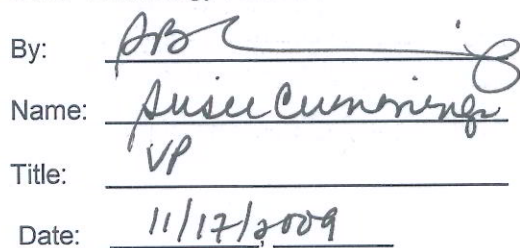 By:
Name: Susie Cummings
Title: VP
Date: 11/17/2009